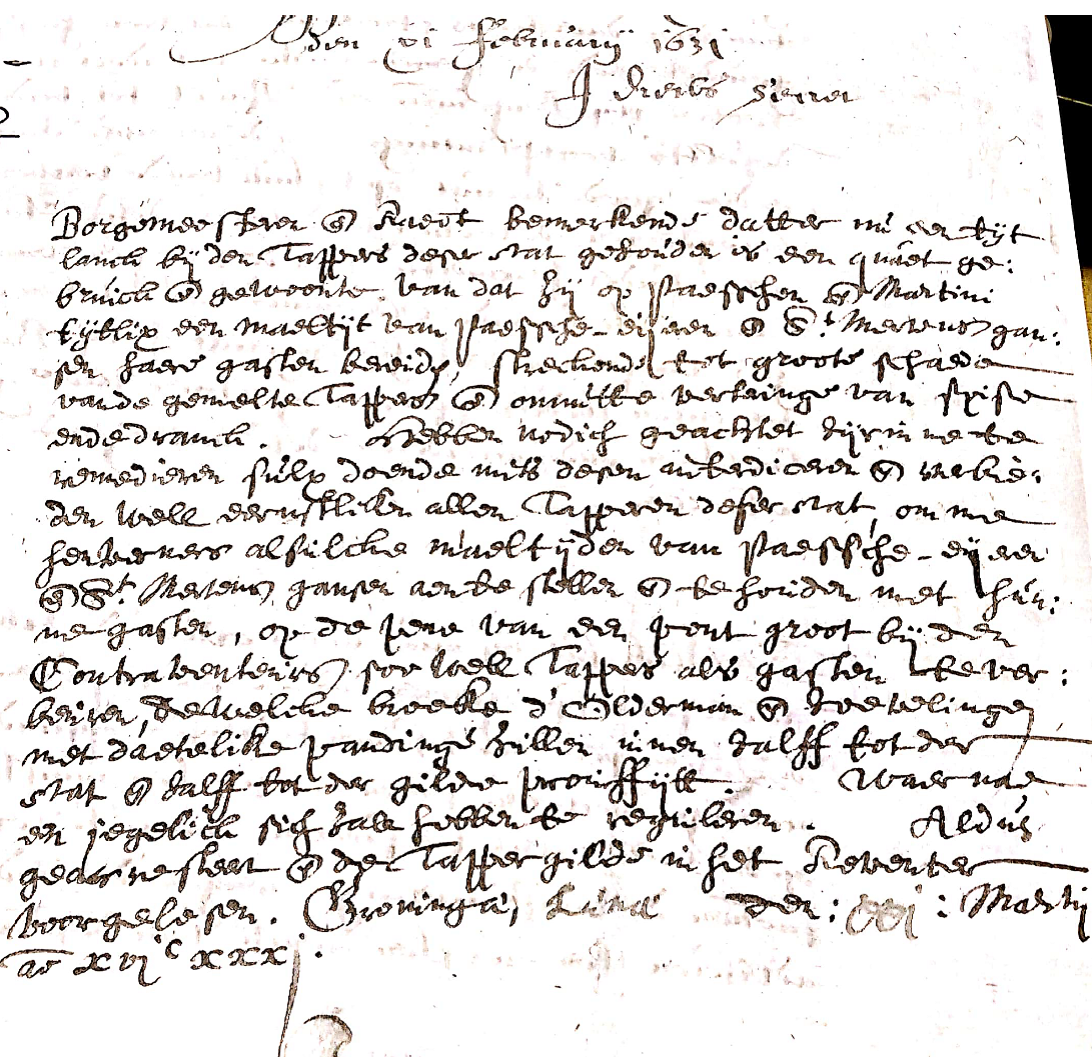 den vi Februarij 1631
J Drews
Borgemeesteren en Raedt bemerkende datter nu een tijt
lanck bij den Tappers deser stat gehouden is een quaet ge:
bruick en gewoente van dat zij op Paesschen en Martini
een maeltijt van Paessche-eijeren en St Mertens gan:
sen haere gasten bereiden, streckende tot groote schaede
vande gemelte Tappers en onnutte van spise
ende dranck. Hebben nodich geachtet hijrinne te
remedieren sulx doende mits desen interdiceren en verbie:
den well ernstliken allen Tapperen deser stat, omme
alsulcke maeltijden van Paessche-eijeren
en St Mertens gansen aen te stellen en te houden met hun:
ne gasten, op de pene van een pont groot bij den
Contraventeurs soo well Tappers als gasten te ver:
beuren, dewelcke broeke d'Olderman en Hoevelingen
met daetelike pandinge zullen innen halff tot der
stat en halff tot der gilde prouffijtt. Waer nae
een jegelick sich zall hebben te reguleren. Aldus
gearresteert en der Tapper gilde in het Reventer
voorgelesen. Groninga, Lunae den: xxi: Martij
ao xvic xxxj.